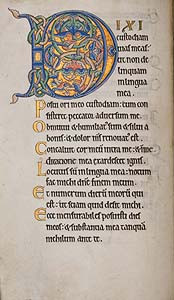 DIXI
custodiam
uias meas:
ut non de
linquam
in lingua
mea.
Posui ori meo custodiam: cum con
sisteret peccator aduersum me.
Obmutui & humiliatus sum & silui a
bonis: & dolor meus renouatus est.
Concaluit cor meum intra me: & in me
ditatione mea exardescet ignis.
Locutus sum in lingua mea: notum
fac michi dne finem meum.
Et numerum dierum meorum qui
est: ut sciam quid desit michi.
Ecce mensurabiles posuisti dies
meos: & substantia mea tanquam
nichilum ante te.